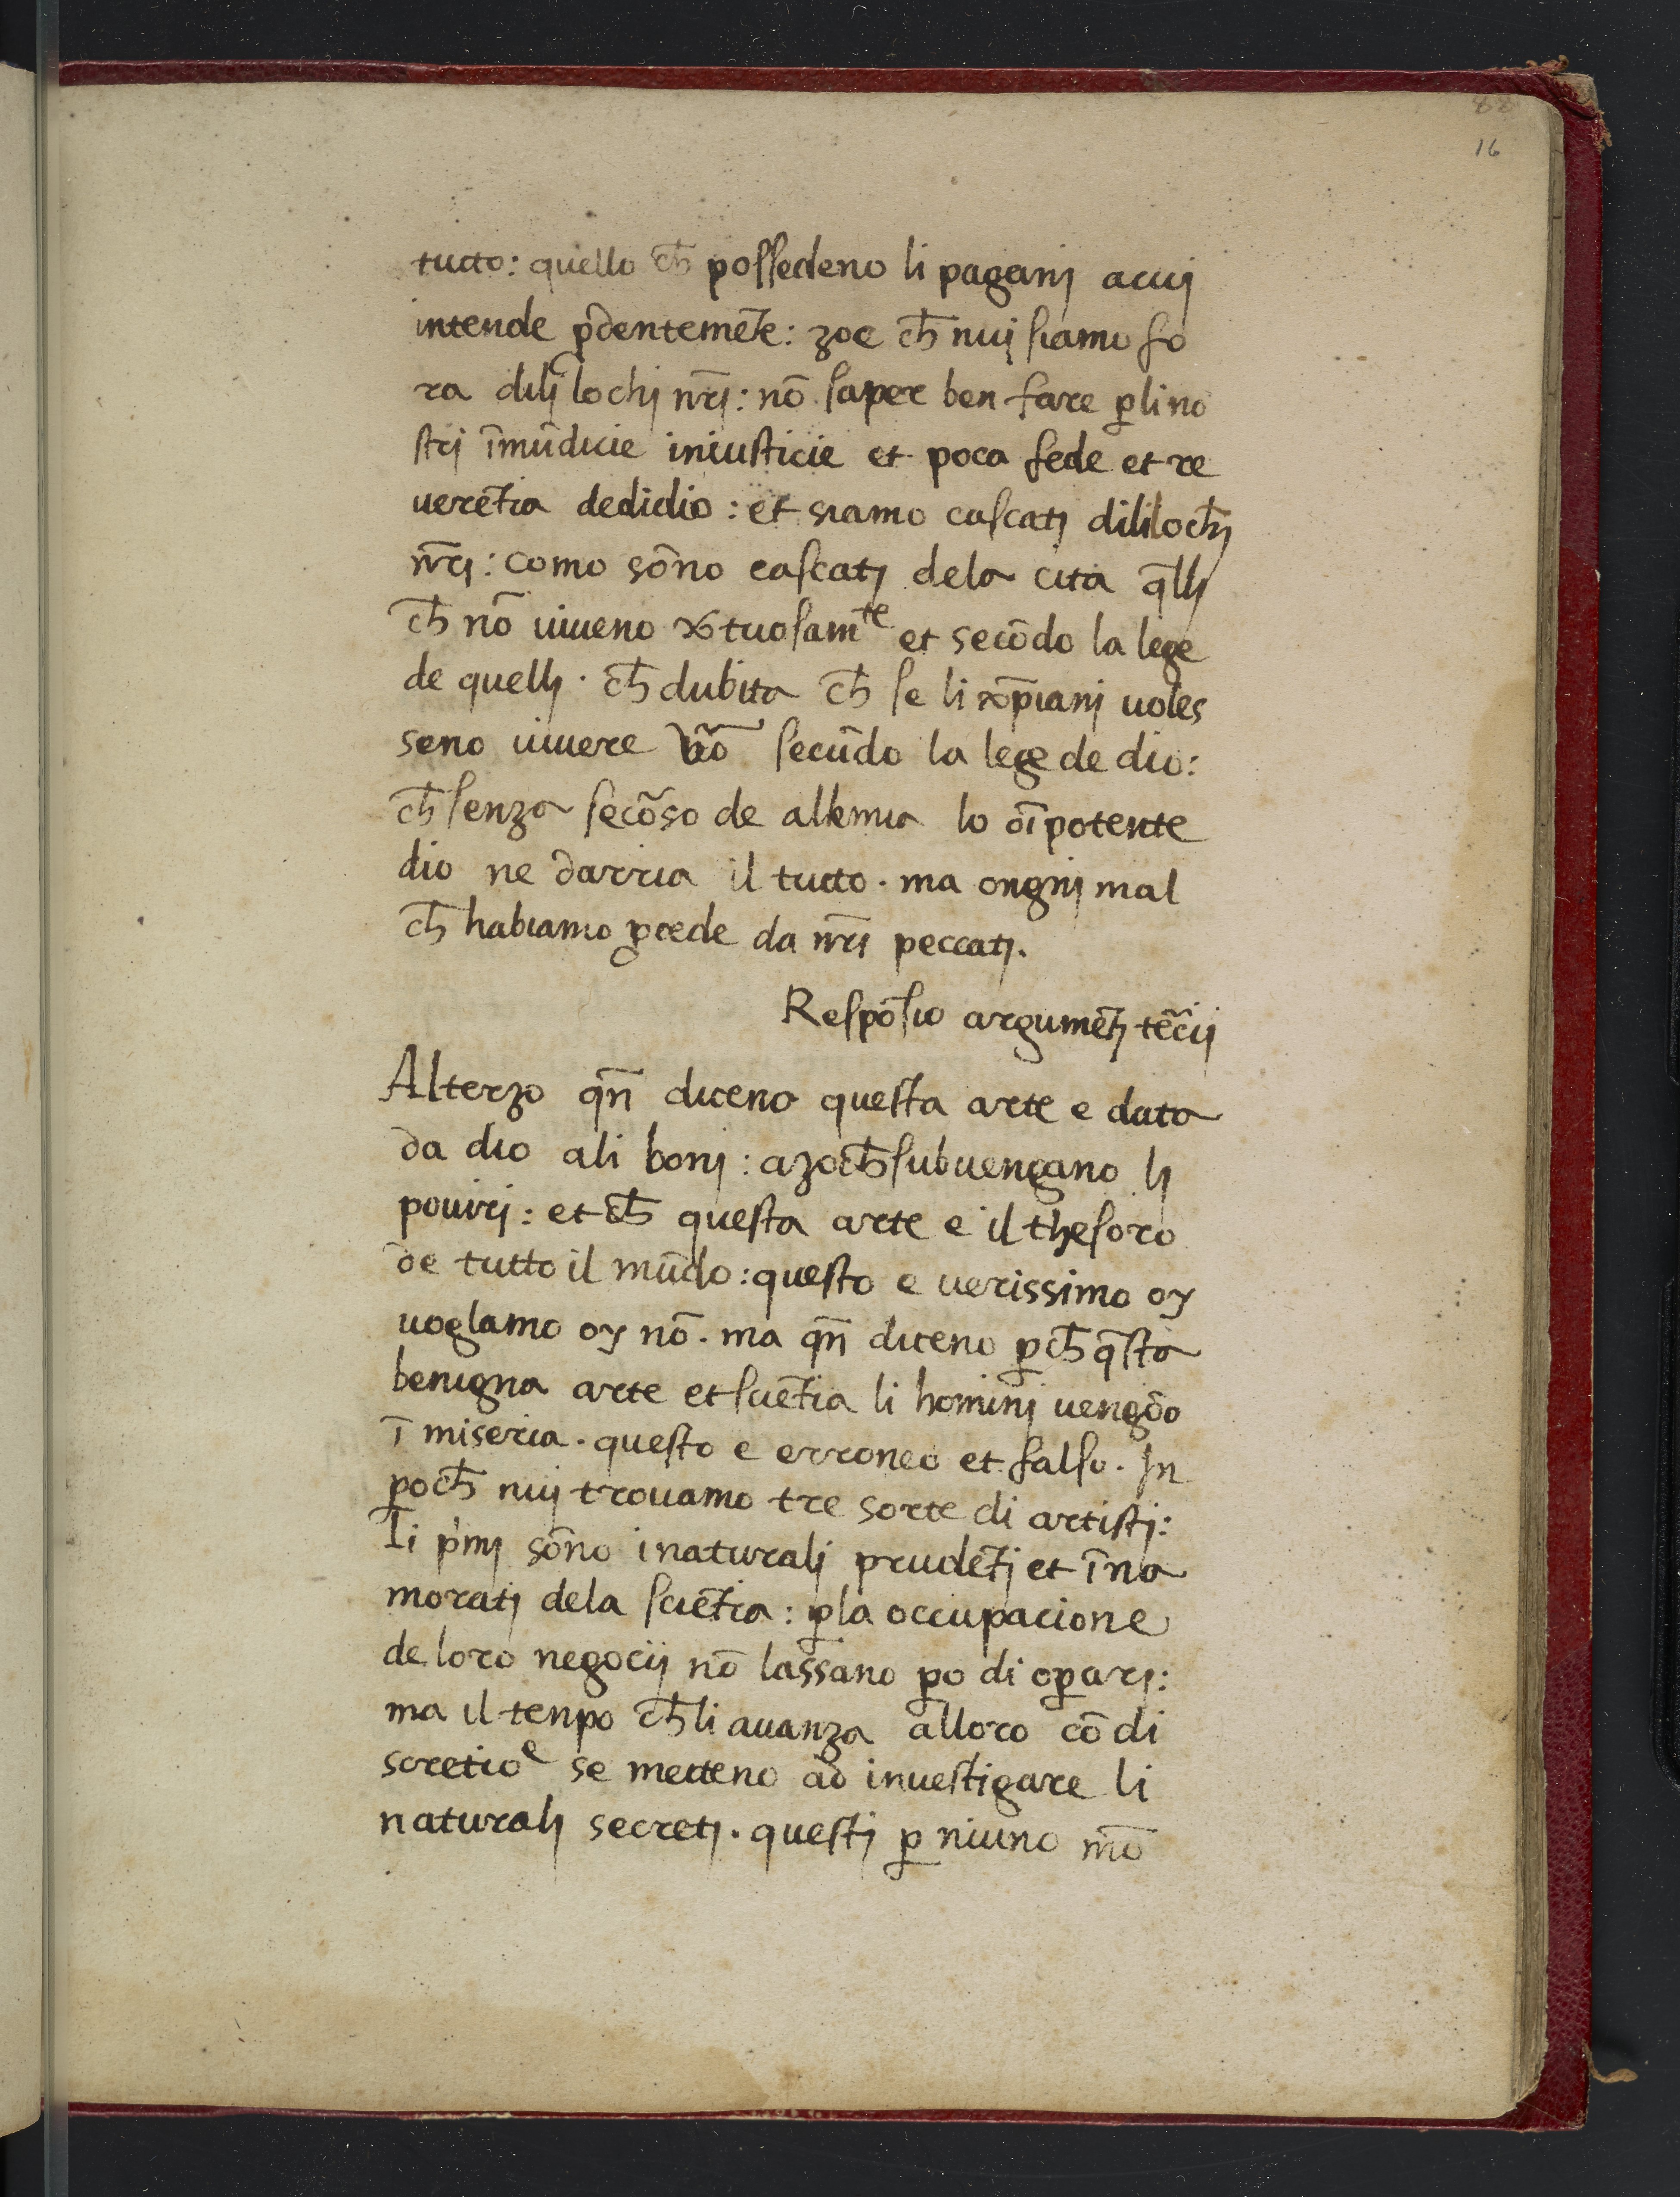 88
16
tucto: quello ch̄ posſedeno li paganj acuj
intende p̄dentemēte: zoe ch̄ nuj ſiamo fo
ra dilj lochj nr̄j: nō ſaper ben fare ꝑ li no
ſtrj īmūdicie iniuſticie et poca fede et re
uerētia dedidio: et siamo caſcatj dililoch̄j
nr̄j: como sōno caſcatj dela cita q̄llj
ch̄ nō uiueno xͦtuoſamte et secōdo la lege
de quellj. ch̄ dubita ch̄ ſe li xp̄ianj uoleſ
seno uiuere ſecūdo la lege de dio:
ch̄ ſenza ſecōſo de alkmia lo oīpotente
dio ne darria il tucto. ma ongnj mal
ch̄ habiamo ꝓcede da nr̄j peccatj.
Reſpōſio argumētj tēcij
Alterzo qn̄ diceno queſta arte e data
da dio ali bonj: azoch̄ ſubuengano lj
pouirj: et ch̄ queſta arte e il theſoro
de tutto il mūdo: queſto e uerissimo oy
uoglamo oy nō. ma qn̄ diceno ꝑch̄ q̄ſta
benigna arte et ſciētia li hominj uengōo
ī miseria. queſto e erroneo et falſo. In
ꝑoch̄ nuj trouamo tre sorte di artiſtj:
Li p̄mj sōno inaturalj prudētj et īna
moratj dela ſciētia: ꝑ la occupacione
de loro negocij nō lassano ꝑo di oꝑarj:
ma il tenpo ch̄ li auanza alloro cō di
scretioe se metteno ad inueſtigare li
naturalj secretj. queſtj ꝑ niuno mō